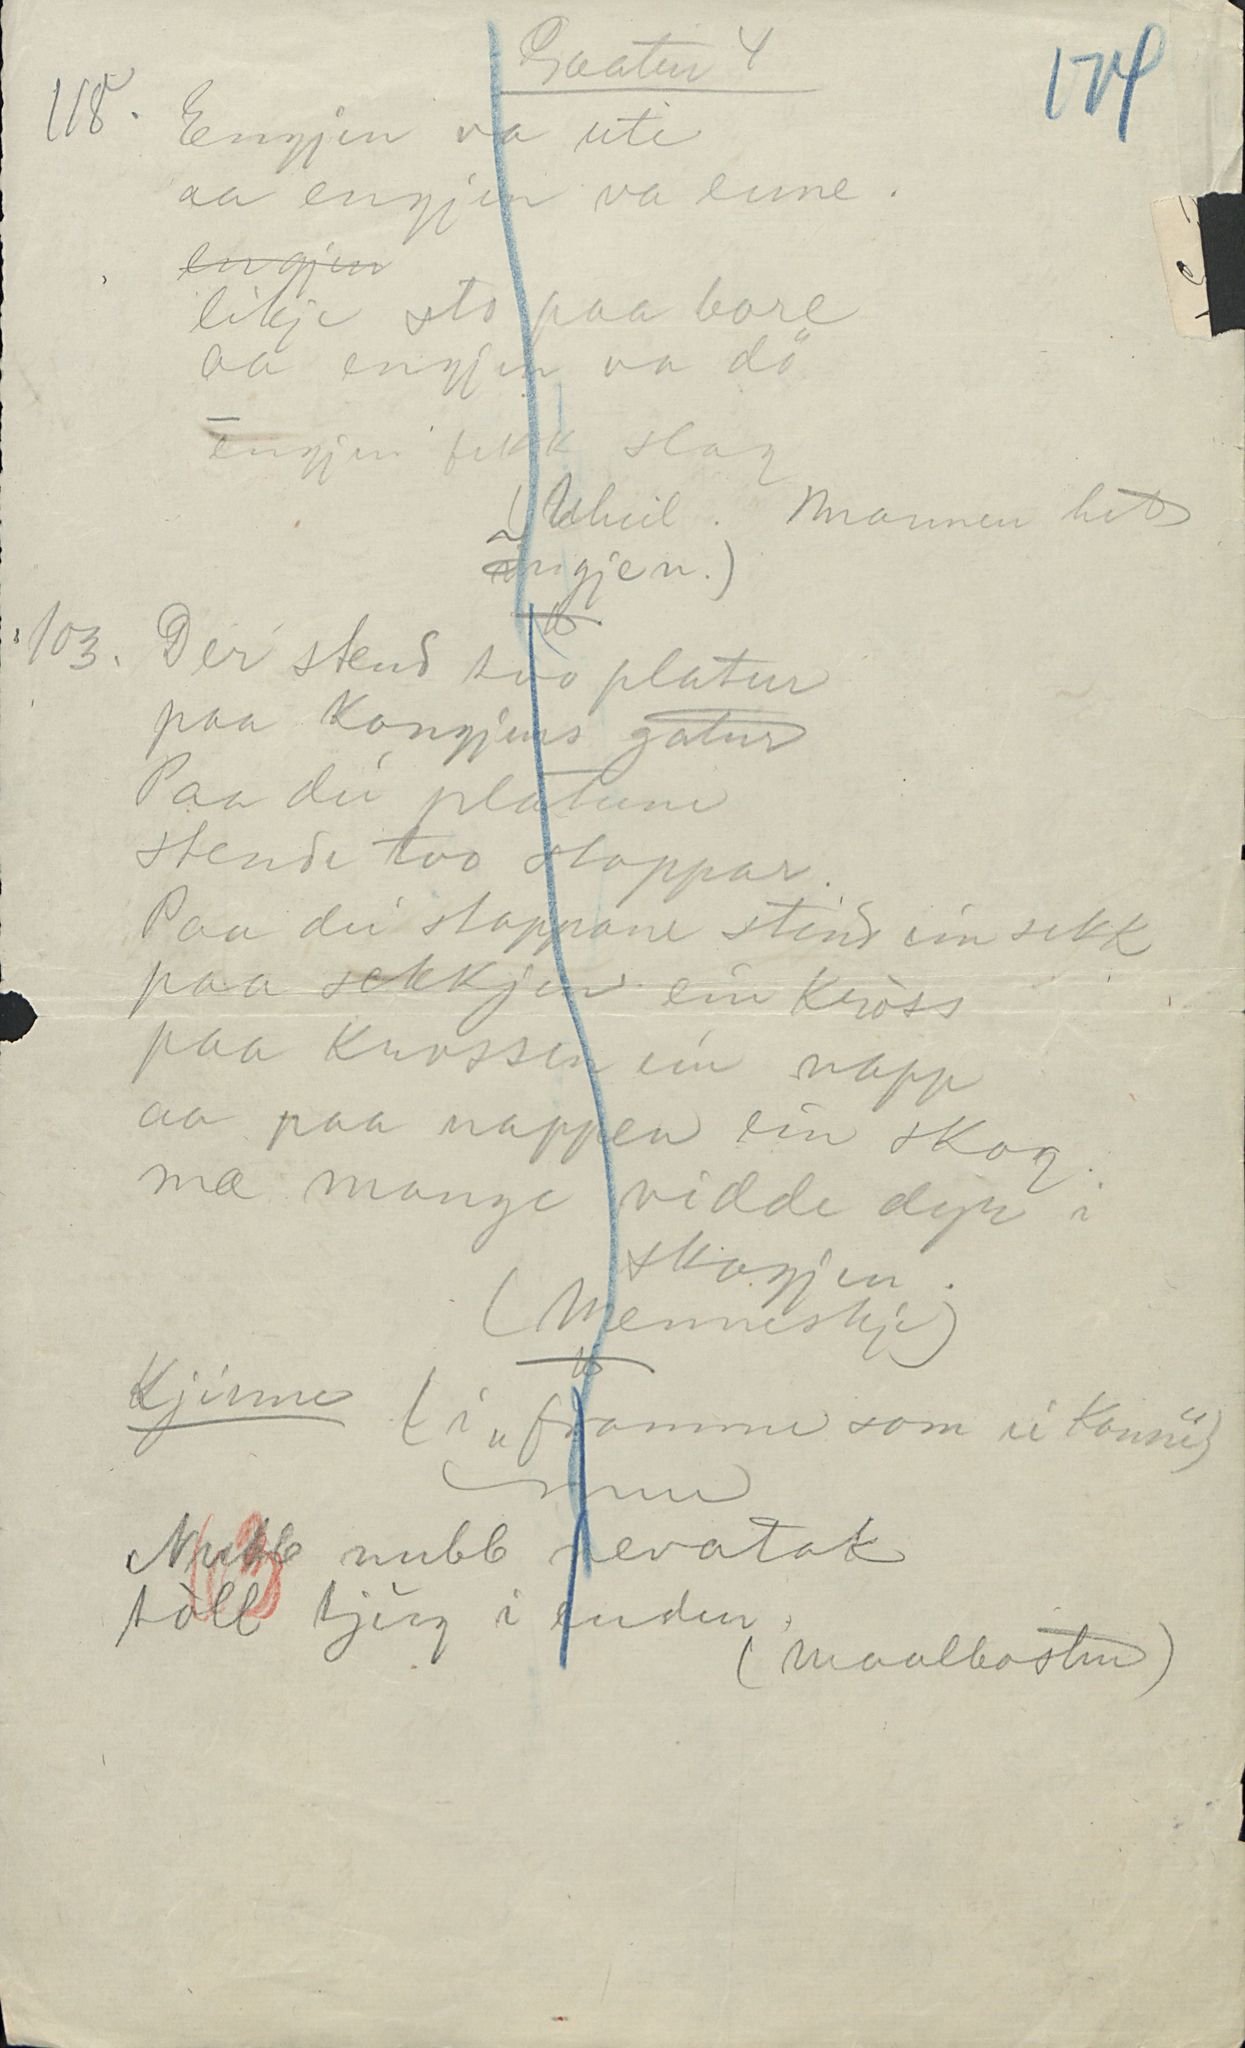 Gaatur 4
174
118. Eengjen va uti
aa engjen va eine.
engjen
likje sto paa bore
aa engjen va dö
engjen fekk slag
(Uheil. Mannen het
engjen.)
103. Der stend two platur
paa Kongjens gatur
Paa dei platune
stende two stoppar.
Paa dei stoppane stend ein sekk
paa sekkjen ein Kröss
paa Krossen ein napp
aa paa nappen ein skog.
mæ mange vidde dyr i
skogjen.
(Menneskje)
Kjinne (i „framme som ei Konne“)
Nubb nubb nevatak
tòll tjug i enden.
(Maalbòsten)